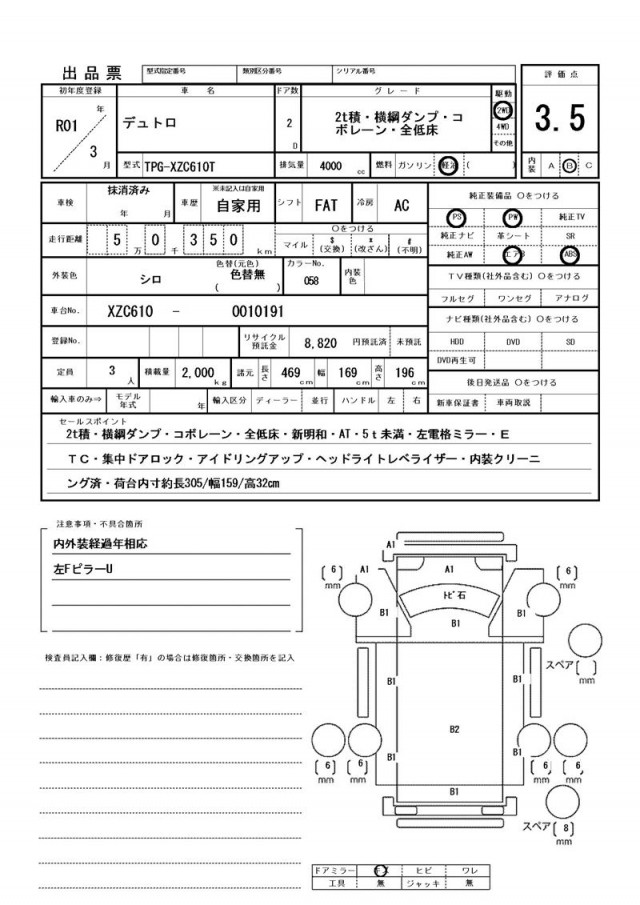 出品票 型式指定番号 類別区分番号 シリアル番号
評価点
3.5
内装 A B C
初年度登録 車名 ドア数 グレード 駆動
R01 年 3 月
デュトロ
2 D
2t積・横綱ダンプ・コ
ボレーン・全低床
2WD
4WD
その他
型式 TPG-XZC610T 排気量 4000 cc 燃料 ガソリン 軽油 ( )
車検 抹消済み 年 月 車歴 ※未記入は自家用 自家用 シフト FAT 冷房 AC
走行距離 5 万 0 千 3 5 0 km
○をつける
マイル $ (交換) * (改ざん) # (不明)
外装色 シロ 色替(元色) 色替無 ( ) カラーNo. 058 内装色
車台No. XZC610 - 0010191
登録No. リサイクル預託金 8,820 円預託済 未預託
定員 3 人 積載量 2,000 kg 諸元 長さ 469 cm 幅 169 cm 高さ 196 cm
輸入車のみ⇒ モデル年式 年 輸入区分 ディーラー 並行 ハンドル 左 右
純正装備品 ○をつける
PS PW 純正TV
純正ナビ 革シート SR
純正AW エアB ABS
TV種類(社外品含む) ○をつける
フルセグ ワンセグ アナログ
ナビ種類(社外品含む) ○をつける
HDD DVD SD
DVD再生可
後日発送品 ○をつける
新車保証書 車両取説
セールスポイント
2t積・横綱ダンプ・コボレーン・全低床・新明和・AT・5t未満・左電格ミラー・E
TC・集中ドアロック・アイドリングアップ・ヘッドライトレベライザー・内装クリーニ
ング済・荷台内寸約長305/幅159/高32cm
注意事項・不具合箇所
内外装経過年相応
左FピラーU
検査員記入欄:修復歴「有」の場合は修復箇所・交換箇所を記入
A1
(6) mm A1 A1 A1 (6) mm
トビ石
B1 B1 B1
スペア( ) mm
B1 B1
B2
B1 B1
(6) mm (6) mm (6) mm (6) mm
B1
スペア(8) mm
ドアミラー キズ ヒビ ワレ
工具 無 ジャッキ 無